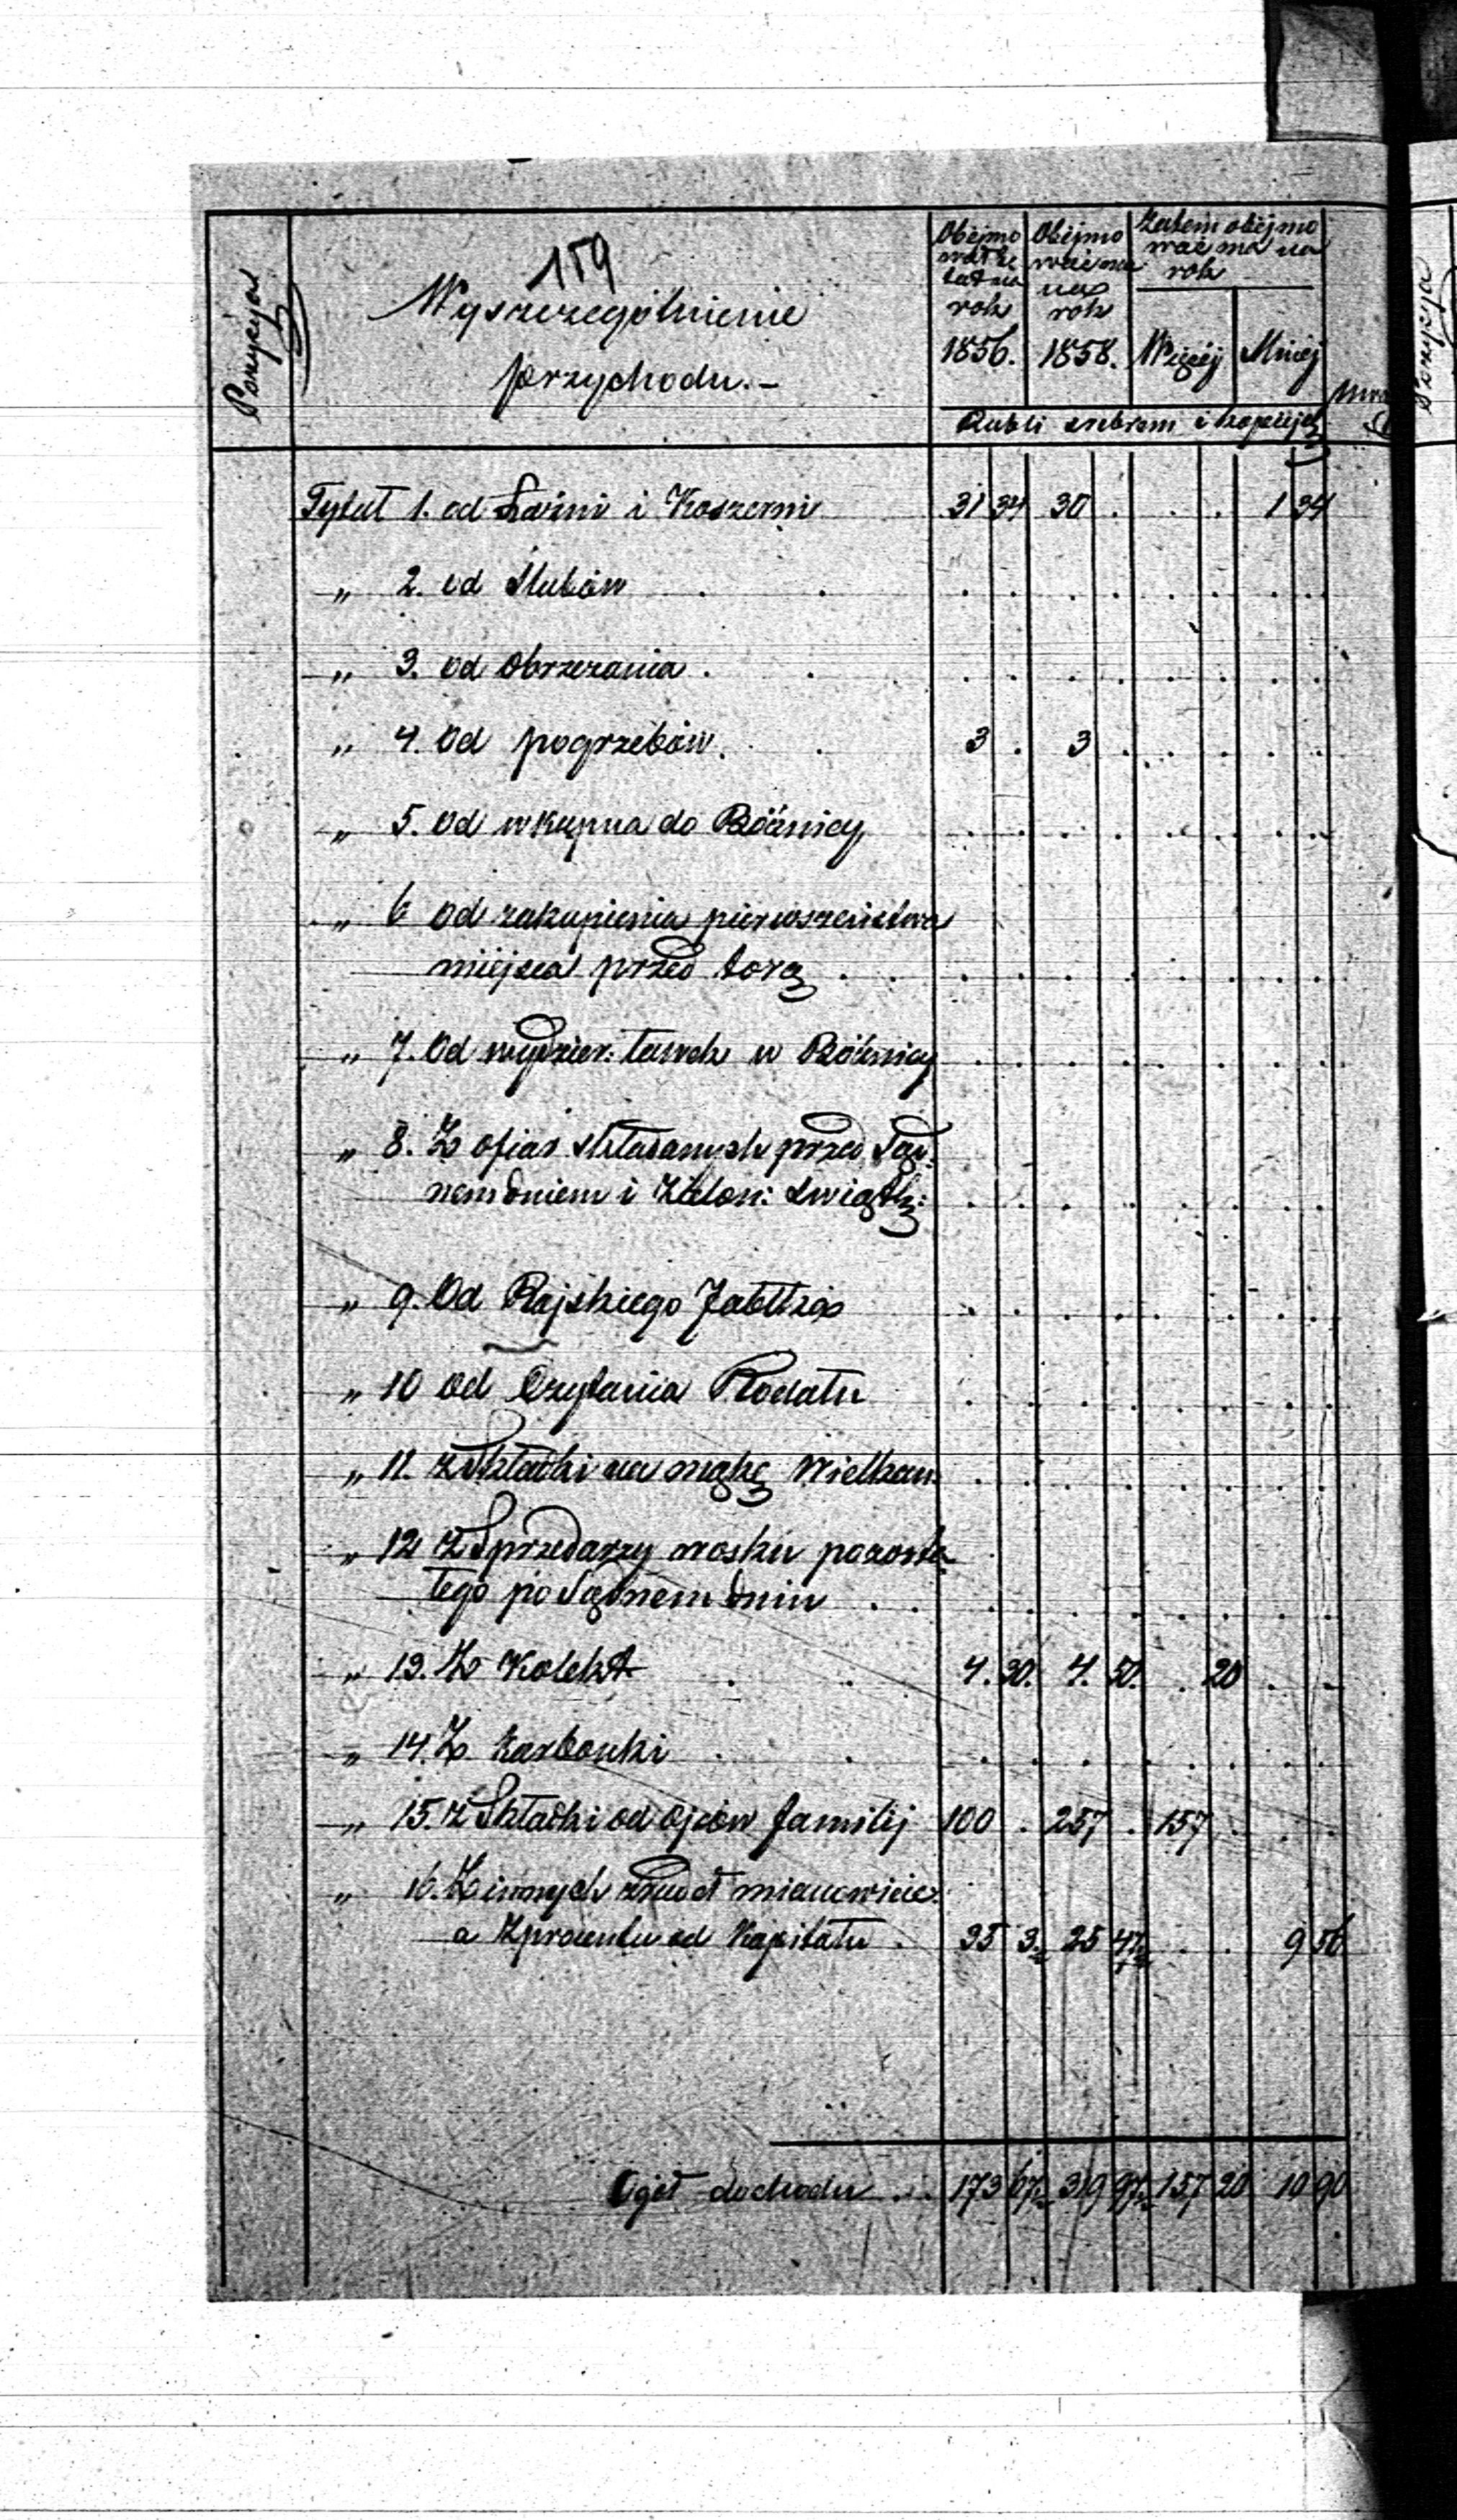 159
Pozycya
Wyszczególnienie
przychodu.-
Obejmo
wał e
tat na
rok
1856.
Obejmo
wać ma
na
rok
1858.
Zatem obejmo
wać ma na
rok
Więcéj
Mniej
Rubli srebrem i kopiejek
Pozycya
Tytuł 1. od Łaźni i Koszerni 31 34 30 . . . 1 34
„ 2. od Ślubów
„ 3. od Obrzezania
„ 4. Od pogrzebów. 3 . 3
„ 5. Od wkupna do Bóżnicy
„ 6 Od zakupienia pierwszeństwa
miejsca przed torą
„ 7. Od wydzier: ławek w Bóżnicy
„ 8. Z ofiar składanych przed Sąd:
nem dniem i Zielon: Swiątk:
„ 9. Od Rajskiego Jabłka
„ 10 od Czytania Rodału
„ 11. z Składki na mąkę Wielkan
„ 12 z Sprzedarzy wosku pozosta
łego po Sądnem dniu
„ 13. Z Kolekt 4. 30. 4. 50. . 20
„ 14. Z Karbonki
„ 15. z Składki od ojców familij 100 . 257 . 157
„ 16. Z innych źrudeł mianowicie
a Z procentu od Kapitału 35 3½ 25 47½ . . 9 56
Ogół dochodu 173 67½ 319 97½ 157 20 10 90